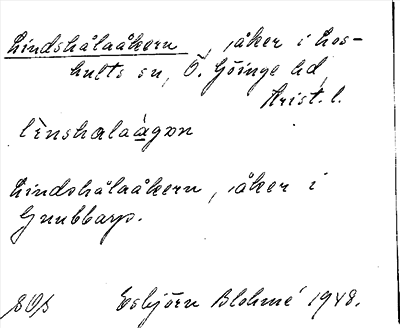 Lindshålaåkern, åker i Los-
hults sn, Ö. Göinge hd,
Krist. l.
lìnshɑlaàgɒn
Lindshålaåkern, åker i
Gnubbarp.
Esbjörn Blohmé 1948.